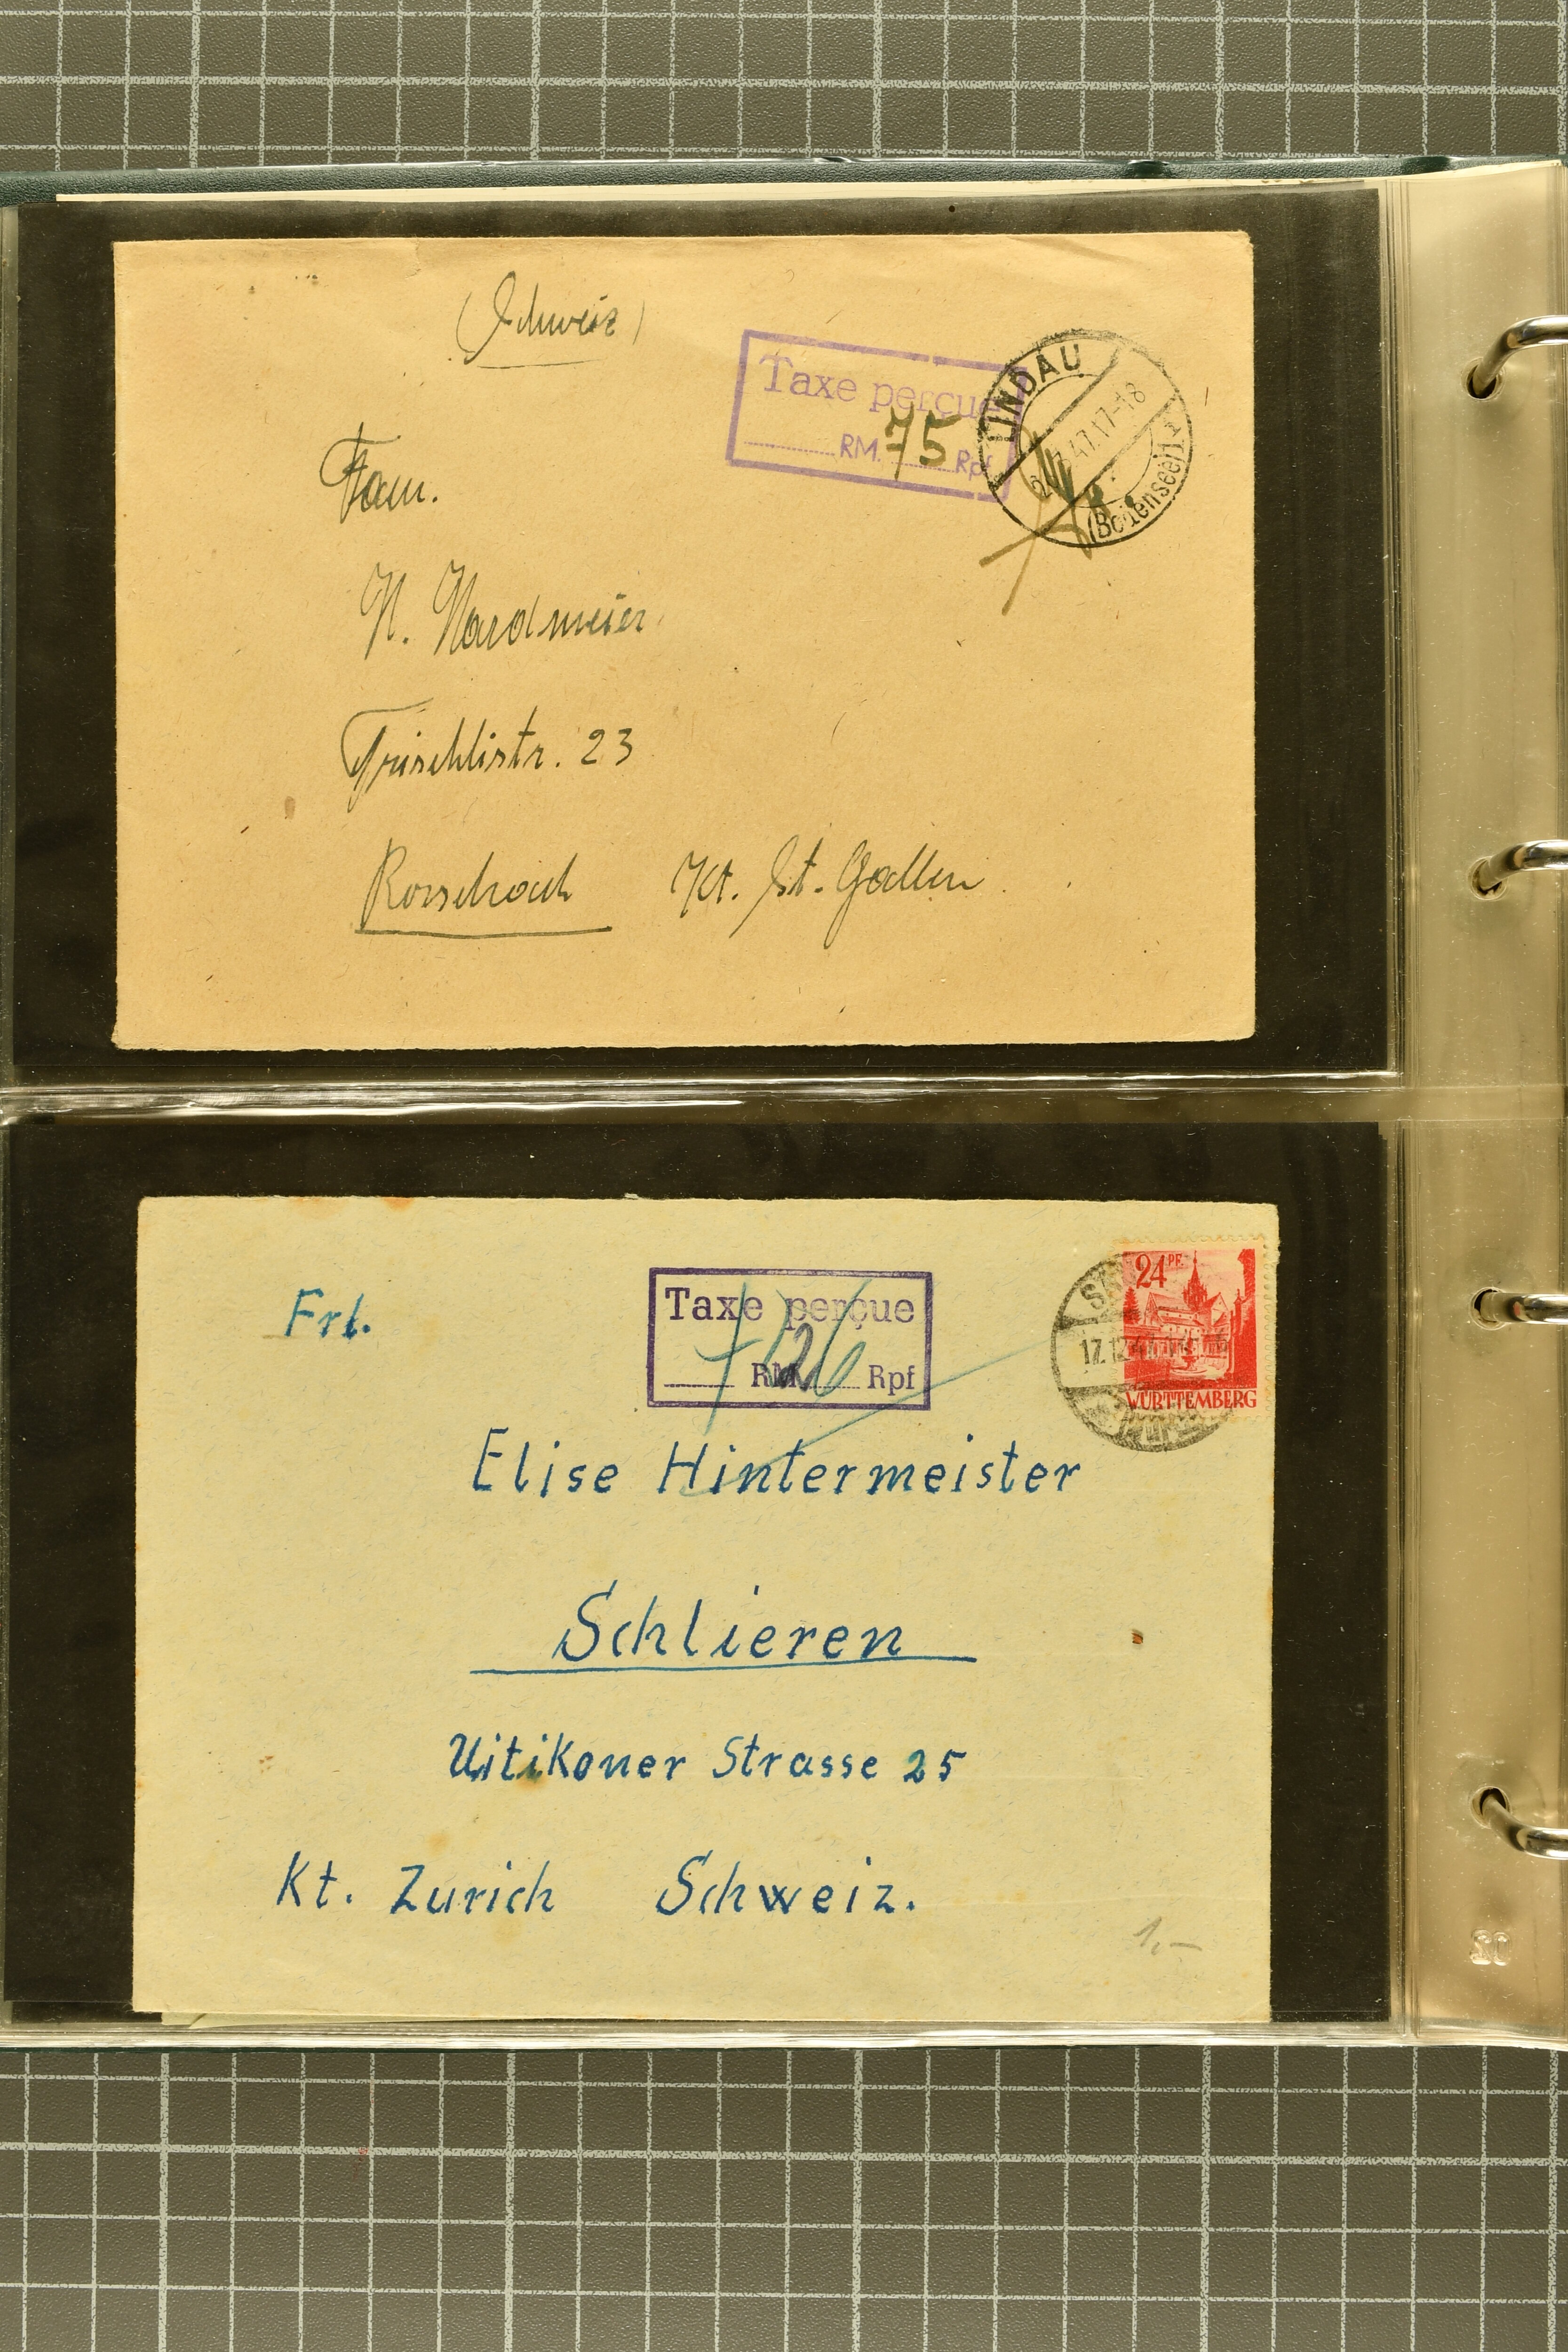 (Schweiz)
Taxe perçue
RM. 75 Rpf
LINDAU
47.17-18
(Bodensee)
Fam.
N. Nardmeier
Trischlistr. 23
Rorschach Kt. St. Gallen
24 PF.
WÜRTTEMBERG
17.12.47
Taxe perçue
RM 26 Rpf
Frl.
Elise Hintermeister
Schlieren
Uitikoner Strasse 25
Kt. Zurich Schweiz.
1,-